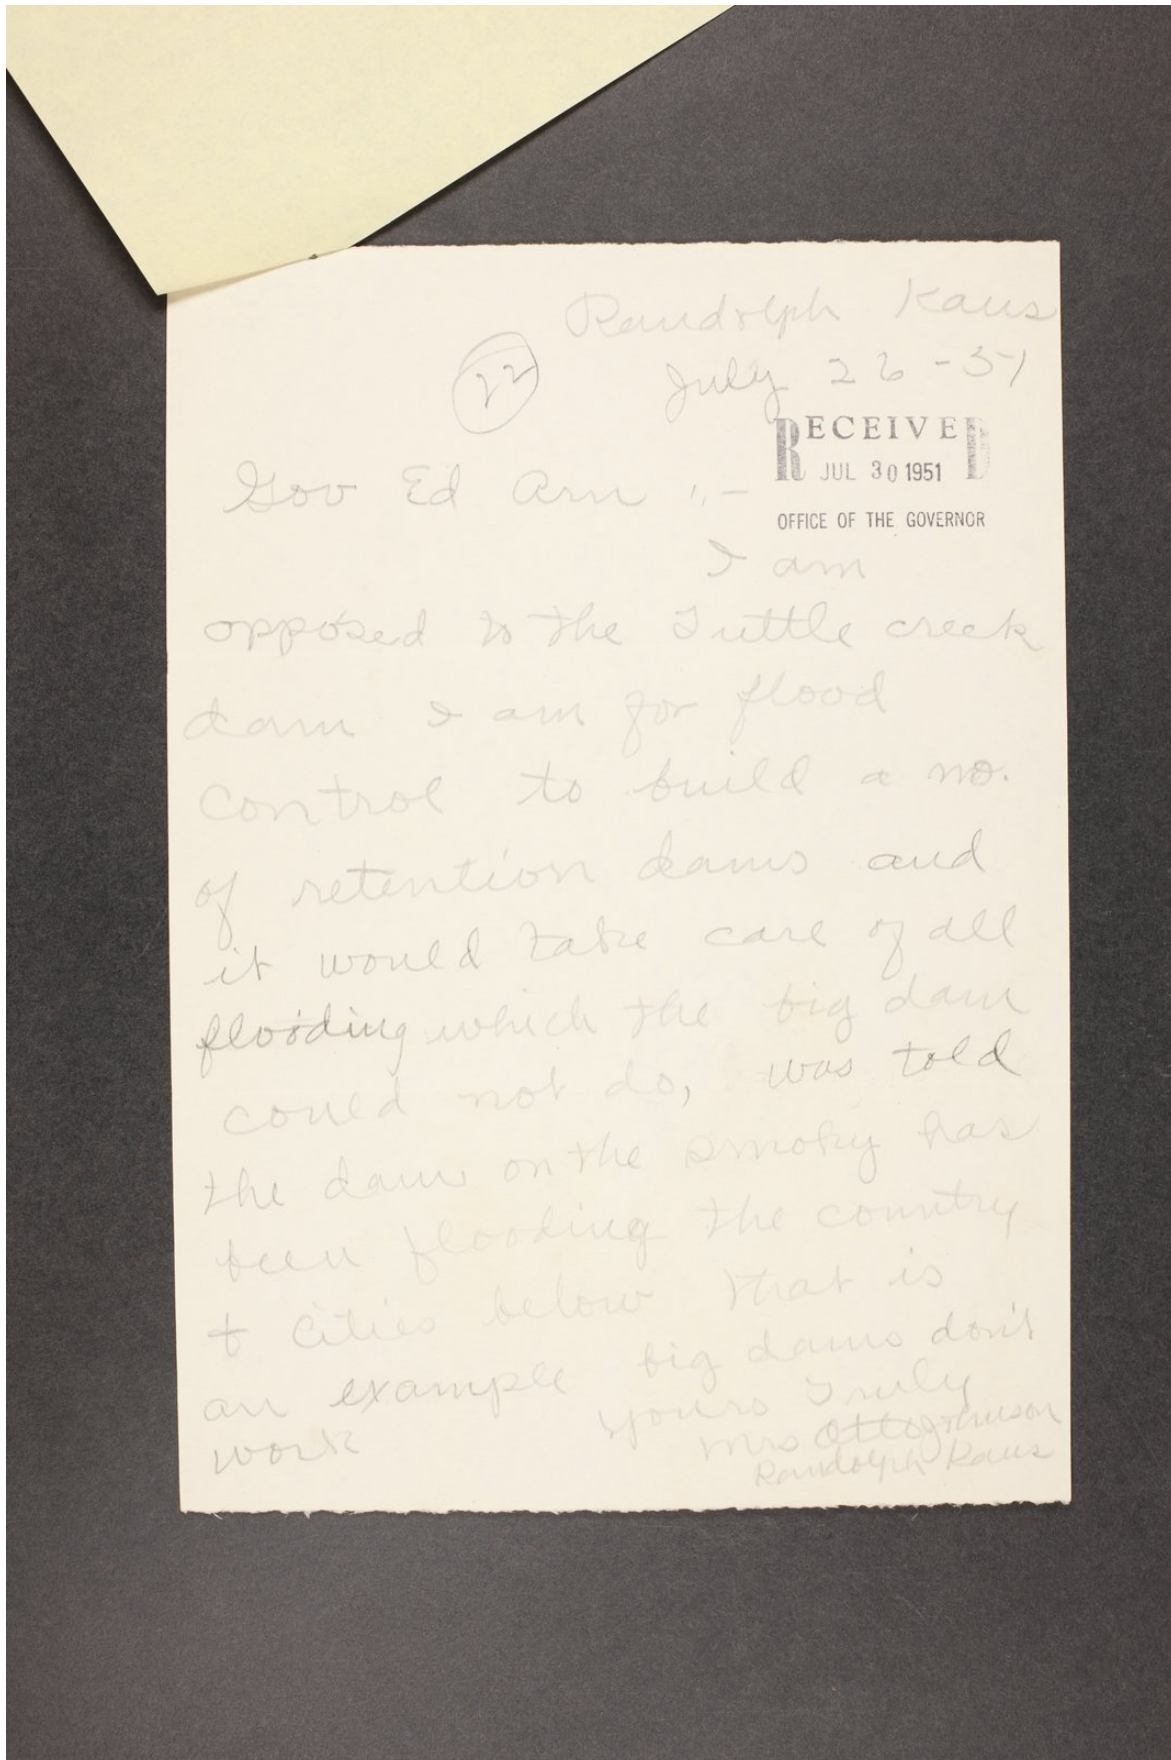 Randolph Kans
22
July 26 - 51
RECEIVED
JUL 30 1951
OFFICE OF THE GOVERNOR
Gov Ed Arn :-
I am
opposed to the Tuttle creek
dam I am for flood
control to build a no.
of retention dams and
it would take care of all
flooding which the big dam
could not do, was told
the dam on the smoky has
been flooding the country
& Cities below that is
an example big dams don't
work
yours Truly
Mrs Otto Johnson
Randolph Kans